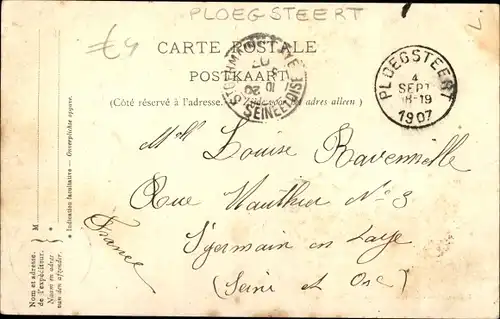 PLOEGSTEERT
€4
CARTE POSTALE
POSTKAART
(Côté réservé à l'adresse. adres alleen)
PLOEGSTEERT
4
SEPT
18-19
1907
ST GERMAIN LAYE
SEINE ET OISE
Mlle Louise Ravennelle
Rue Wauthier No 9
France
St germain en Laye
(Seine et Oise)
* Indication facultative — Onverplichte opgave.
M *
Nom et adresse
de l'expéditeur.
Naam en adres
van den afzender.